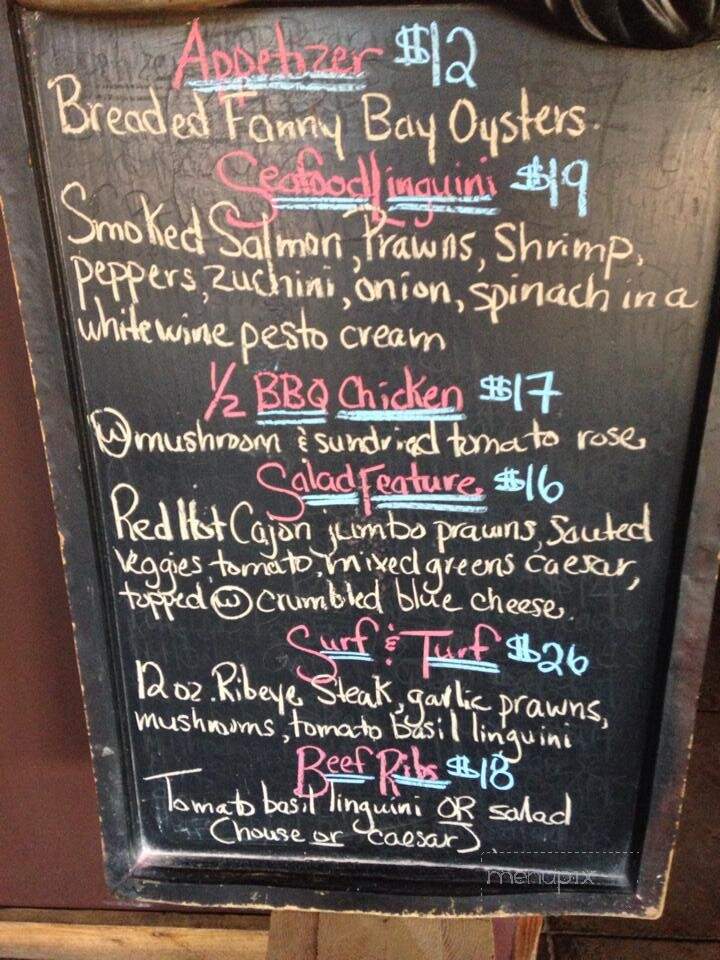 Appetizer $12
Breaded Fanny Bay Oysters.
Seafood Linguini $19
Smoked Salmon, Prawns, Shrimp,
peppers, zuchini, onion, spinach in a
white wine pesto cream
1/2 BBQ Chicken $17
w mushroom & sundried tomato rose
Salad Feature $16
Red Hot Cajon jumbo prawns, Sauted
Veggies, tomato, mixed greens caesar,
topped w crumbled blue cheese.
Surf & Turf $26
12 oz. Ribeye Steak, garlic prawns,
mushrooms, tomato basil linguini
Beef Ribs $18
Tomato basil linguini OR salad
(house or caesar)
menupix